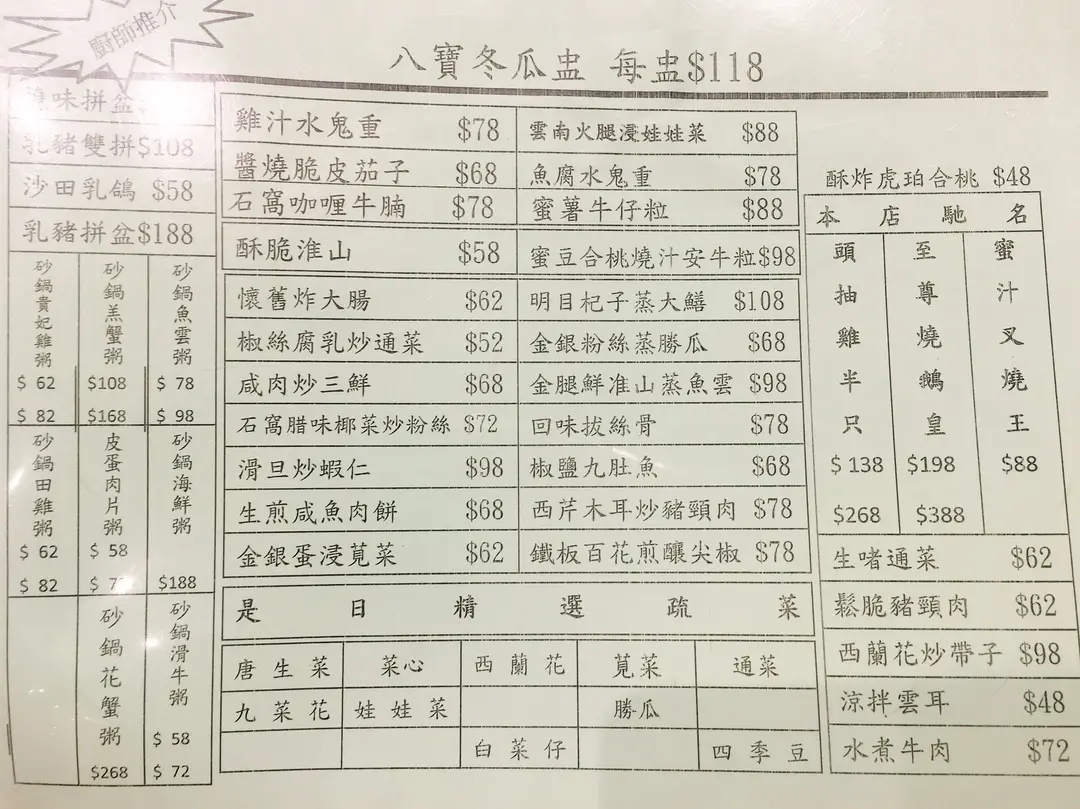 廚師推介
八寶冬瓜盅 每盅$118
燒味拼盆
乳豬雙拼$108
沙田乳鴿 $58
乳豬拼盆$188
砂鍋貴妃雞粥
$ 62
$ 82
砂鍋羔蟹粥
$108
$168
砂鍋魚雲粥
$ 78
$ 98
砂鍋田雞粥
$ 62
$ 82
皮蛋肉片粥
$ 58
砂鍋海鮮粥
$188
砂鍋花蟹粥
$268
砂鍋滑牛粥
$ 58
$ 72
雞汁水鬼重 $78
雲南火腿浸娃娃菜 $88
醬燒脆皮茄子 $68
魚腐水鬼重 $78
石窩咖喱牛腩 $78
蜜薯牛仔粒 $88
酥脆淮山 $58
蜜豆合桃燒汁安牛粒$98
懷舊炸大腸 $62
明目杞子蒸大鱔 $108
椒絲腐乳炒通菜 $52
金銀粉絲蒸勝瓜 $68
咸肉炒三鮮 $68
金腿鮮准山蒸魚雲 $98
石窩腊味椰菜炒粉絲 $72
回味拔絲骨 $78
滑旦炒蝦仁 $98
椒鹽九肚魚 $68
生煎咸魚肉餅 $68
西芹木耳炒豬頸肉 $78
金銀蛋浸莧菜 $62
鐵板百花煎釀尖椒 $78
是日精選疏菜
唐生菜 菜心 西蘭花 莧菜 通菜
九菜花 娃娃菜 勝瓜
白菜仔 四季豆
酥炸虎珀合桃 $48
本店馳名
頭抽雞半只
$ 138
$268
至尊燒鵝皇
$198
$388
蜜汁叉燒王
$88
生啫通菜 $62
鬆脆豬頸肉 $62
西蘭花炒帶子 $98
涼拌雲耳 $48
水煮牛肉 $72